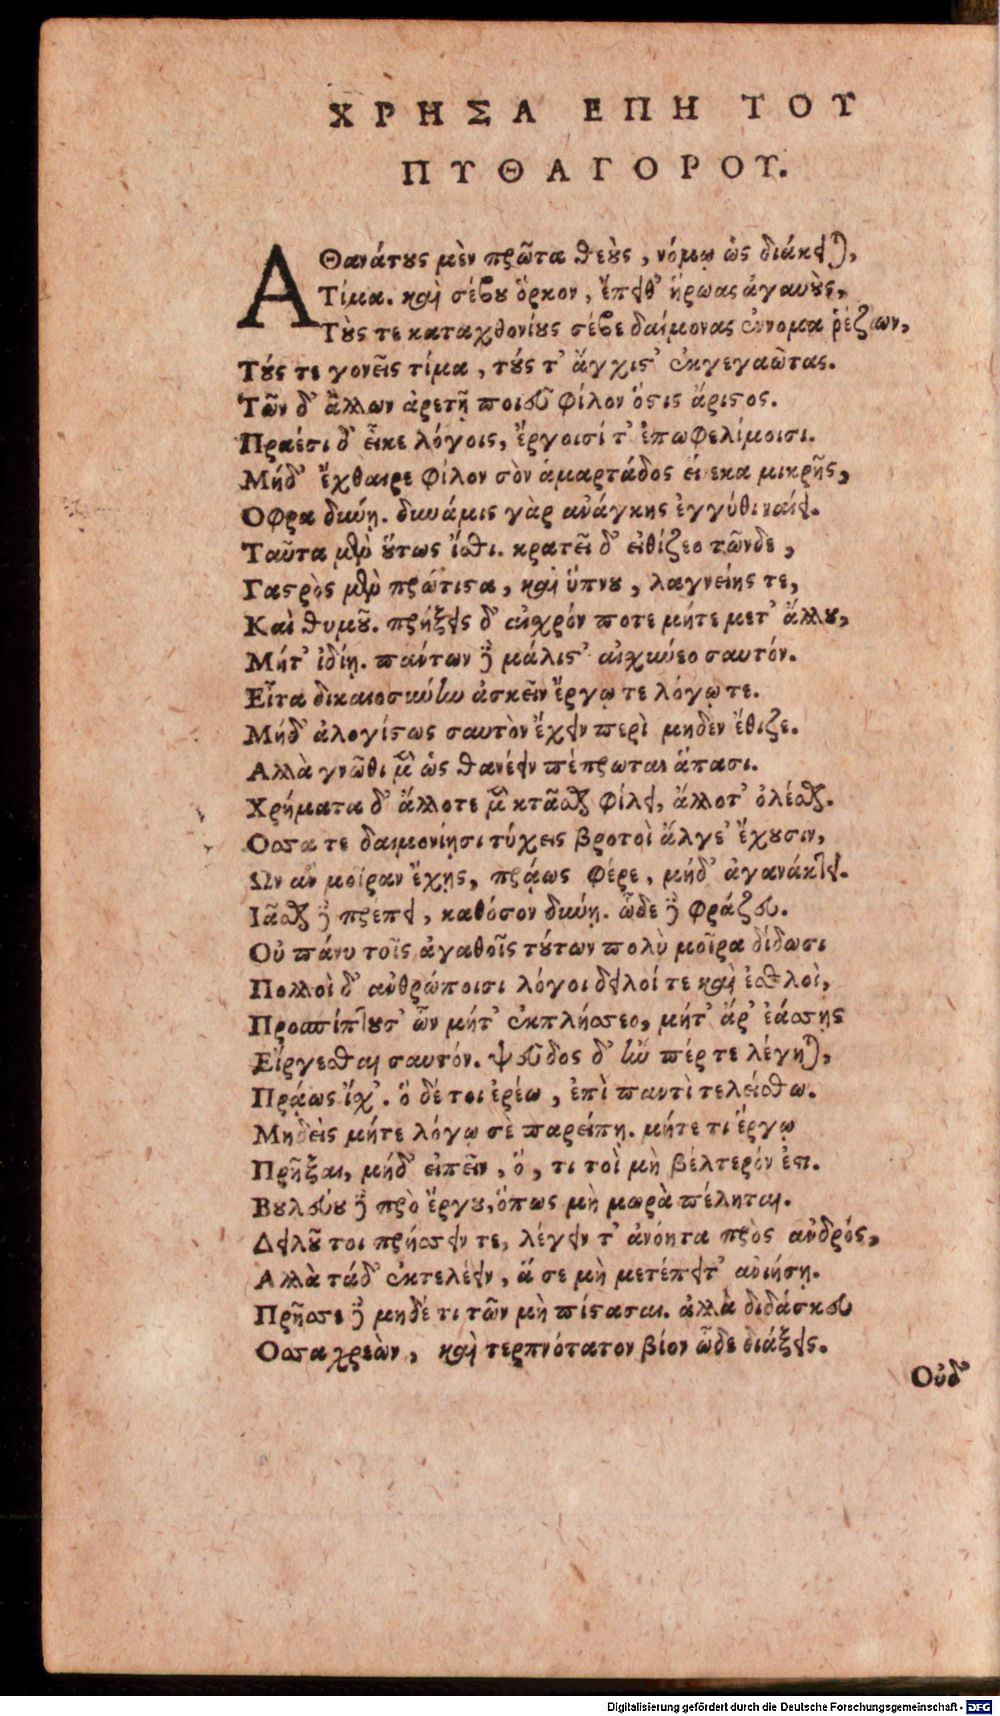 ΧΡΗΣΑ ΕΠΗ ΤΟΥ
ΠΥΘΑΓΟΡΟΥ.
ΑΘανάτους μὲν πρῶτα θεοὺς, νόμῳ ὡς διάκειται,
Τίμα. καὶ σέβου ὅρκον, ἔπειθ' ἥρωας ἀγαυοὺς,
Τοὺς τε καταχθονίους σέβε δαίμονας ἔννομα ῥέζων,
Τούς τε γονεῖς τίμα, τούς τ' ἄγχιστ' ἐκγεγαῶτας.
Τῶν δ' ἄλλων ἀρετῇ ποιοῦ φίλον ὅστις ἄριστος.
Πραέσι δ' εἶκε λόγοις, ἔργοισί τ' ἐπωφελίμοισι.
Μήδ' ἔχθαιρε φίλον σὸν ἁμαρτάδος εἵνεκα μικρῆς,
Οφρα δύνῃ. δυνάμις γὰρ ἀνάγκης ἐγγύθι ναίει.
Ταῦτα μὲν οὕτως ἴσθι. κρατεῖν δ' εἰθίζεο τῶνδε,
Γαστρὸς μὲν πρώτιστα, καὶ ὕπνου, λαγνείης τε,
Καὶ θυμοῦ. πρήξεις δ' αἰχρόν ποτε μήτε μετ' ἄλλου,
Μήτ' ἰδίῃ. πάντων δὲ μάλιστ' αἰχύνεο σαυτόν.
Εἶτα δικαιοσύνην ἀσκεῖν ἔργῳ τε λόγῳ τε.
Μήδ' ἀλογίστως σαυτὸν ἔχειν περὶ μηδὲν ἔθιζε.
Αλλὰ γνῶθι μὲν ὡς θανέειν πέπρωται ἅπασι.
Χρήματα δ' ἄλλοτε μὲν κτᾶσθαι φίλει, ἄλλοτ' ὀλέσθαι.
Οσσα τε δαιμονίῃσι τύχεις βροτοὶ ἄλγε' ἔχουσιν,
Ων ἂν μοῖραν ἔχῃς, πρᾴως φέρε, μήδ' ἀγανάκτει.
Ιᾶσθαι δὲ πρέπει, καθόσον δύνῃ. ὧδε δὲ φράζευ.
Οὐ πάνυ τοῖς ἀγαθοῖς τούτων πολὺ μοῖρα δίδωσι
Πολλοὶ δ' ἀνθρώποισι λόγοι δειλοί τε καὶ ἐσθλοὶ,
Προσπίπτουσ' ὧν μήτ' ἐκπλήσσεο, μήτ' ἄρ' ἐάσσης
Εἴργεσθαι σαυτόν. ψεῦδος δ' ἢν πέρ τε λέγηται,
Πρᾴως ἴχ'. ὃ δέ τοι ἐρέω, ἐπὶ παντὶ τελείσθω.
Μηδεὶς μήτε λόγῳ σὲ παρείπῃ. μήτε τι ἔργῳ
Πρῆξαι, μήδ' εἰπεῖν, ὅ, τι τοὶ μὴ βέλτερόν ἐστι.
Βουλεύου δὲ πρὸ ἔργου, ὅπως μὴ μωρὰ πέληται.
Δειλοῦ τοι πρήσσειν τε, λέγειν τ' ἀνόητα πρὸς ἀνδρός,
Αλλὰ τάδ' ἐκτελέειν, ἅ σε μὴ μετέπειτ' ἀνιήσῃ.
Πρῆσσε δὲ μηδέ τι τῶν μὴ πίστασαι. ἀλλὰ διδάσκευ
Οσσα χρεὼν, καὶ τερπνότατον βίον ὧδε διάξεις.
Οὐδ'
Digitalisierung gefördert durch die Deutsche Forschungsgemeinschaft - DFG